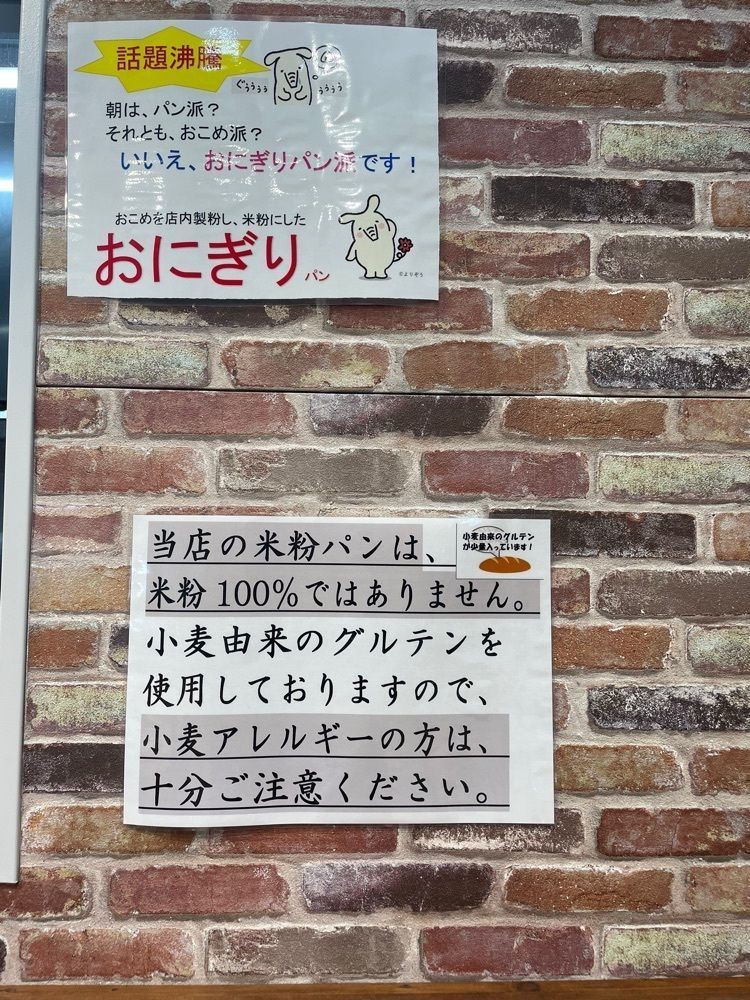 話題沸騰
ぐぅぅぅぅ
ぅぅぅぅ
朝は、パン派？
それとも、おこめ派？
いいえ、おにぎりパン派です！
おこめを店内製粉し、米粉にした
おにぎりパン
©よりぞう
当店の米粉パンは、
小麦由来のグルテン
が少量入っています！
米粉100％ではありません。
小麦由来のグルテンを
使用しておりますので、
小麦アレルギーの方は、
十分ご注意ください。